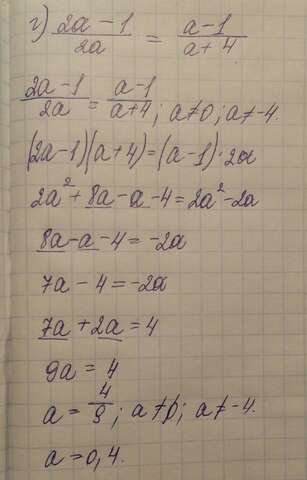 г) (2a - 1)/(2a) = (a - 1)/(a + 4)
(2a - 1)/(2a) = (a - 1)/(a + 4); a ≠ 0; a ≠ -4.
(2a - 1)(a + 4) = (a - 1) · 2a
2a² + 8a - a - 4 = 2a² - 2a
8a - a - 4 = -2a
7a - 4 = -2a
7a + 2a = 4
9a = 4
a = 4/9; a ≠ 0; a ≠ -4.
a = 0,4.